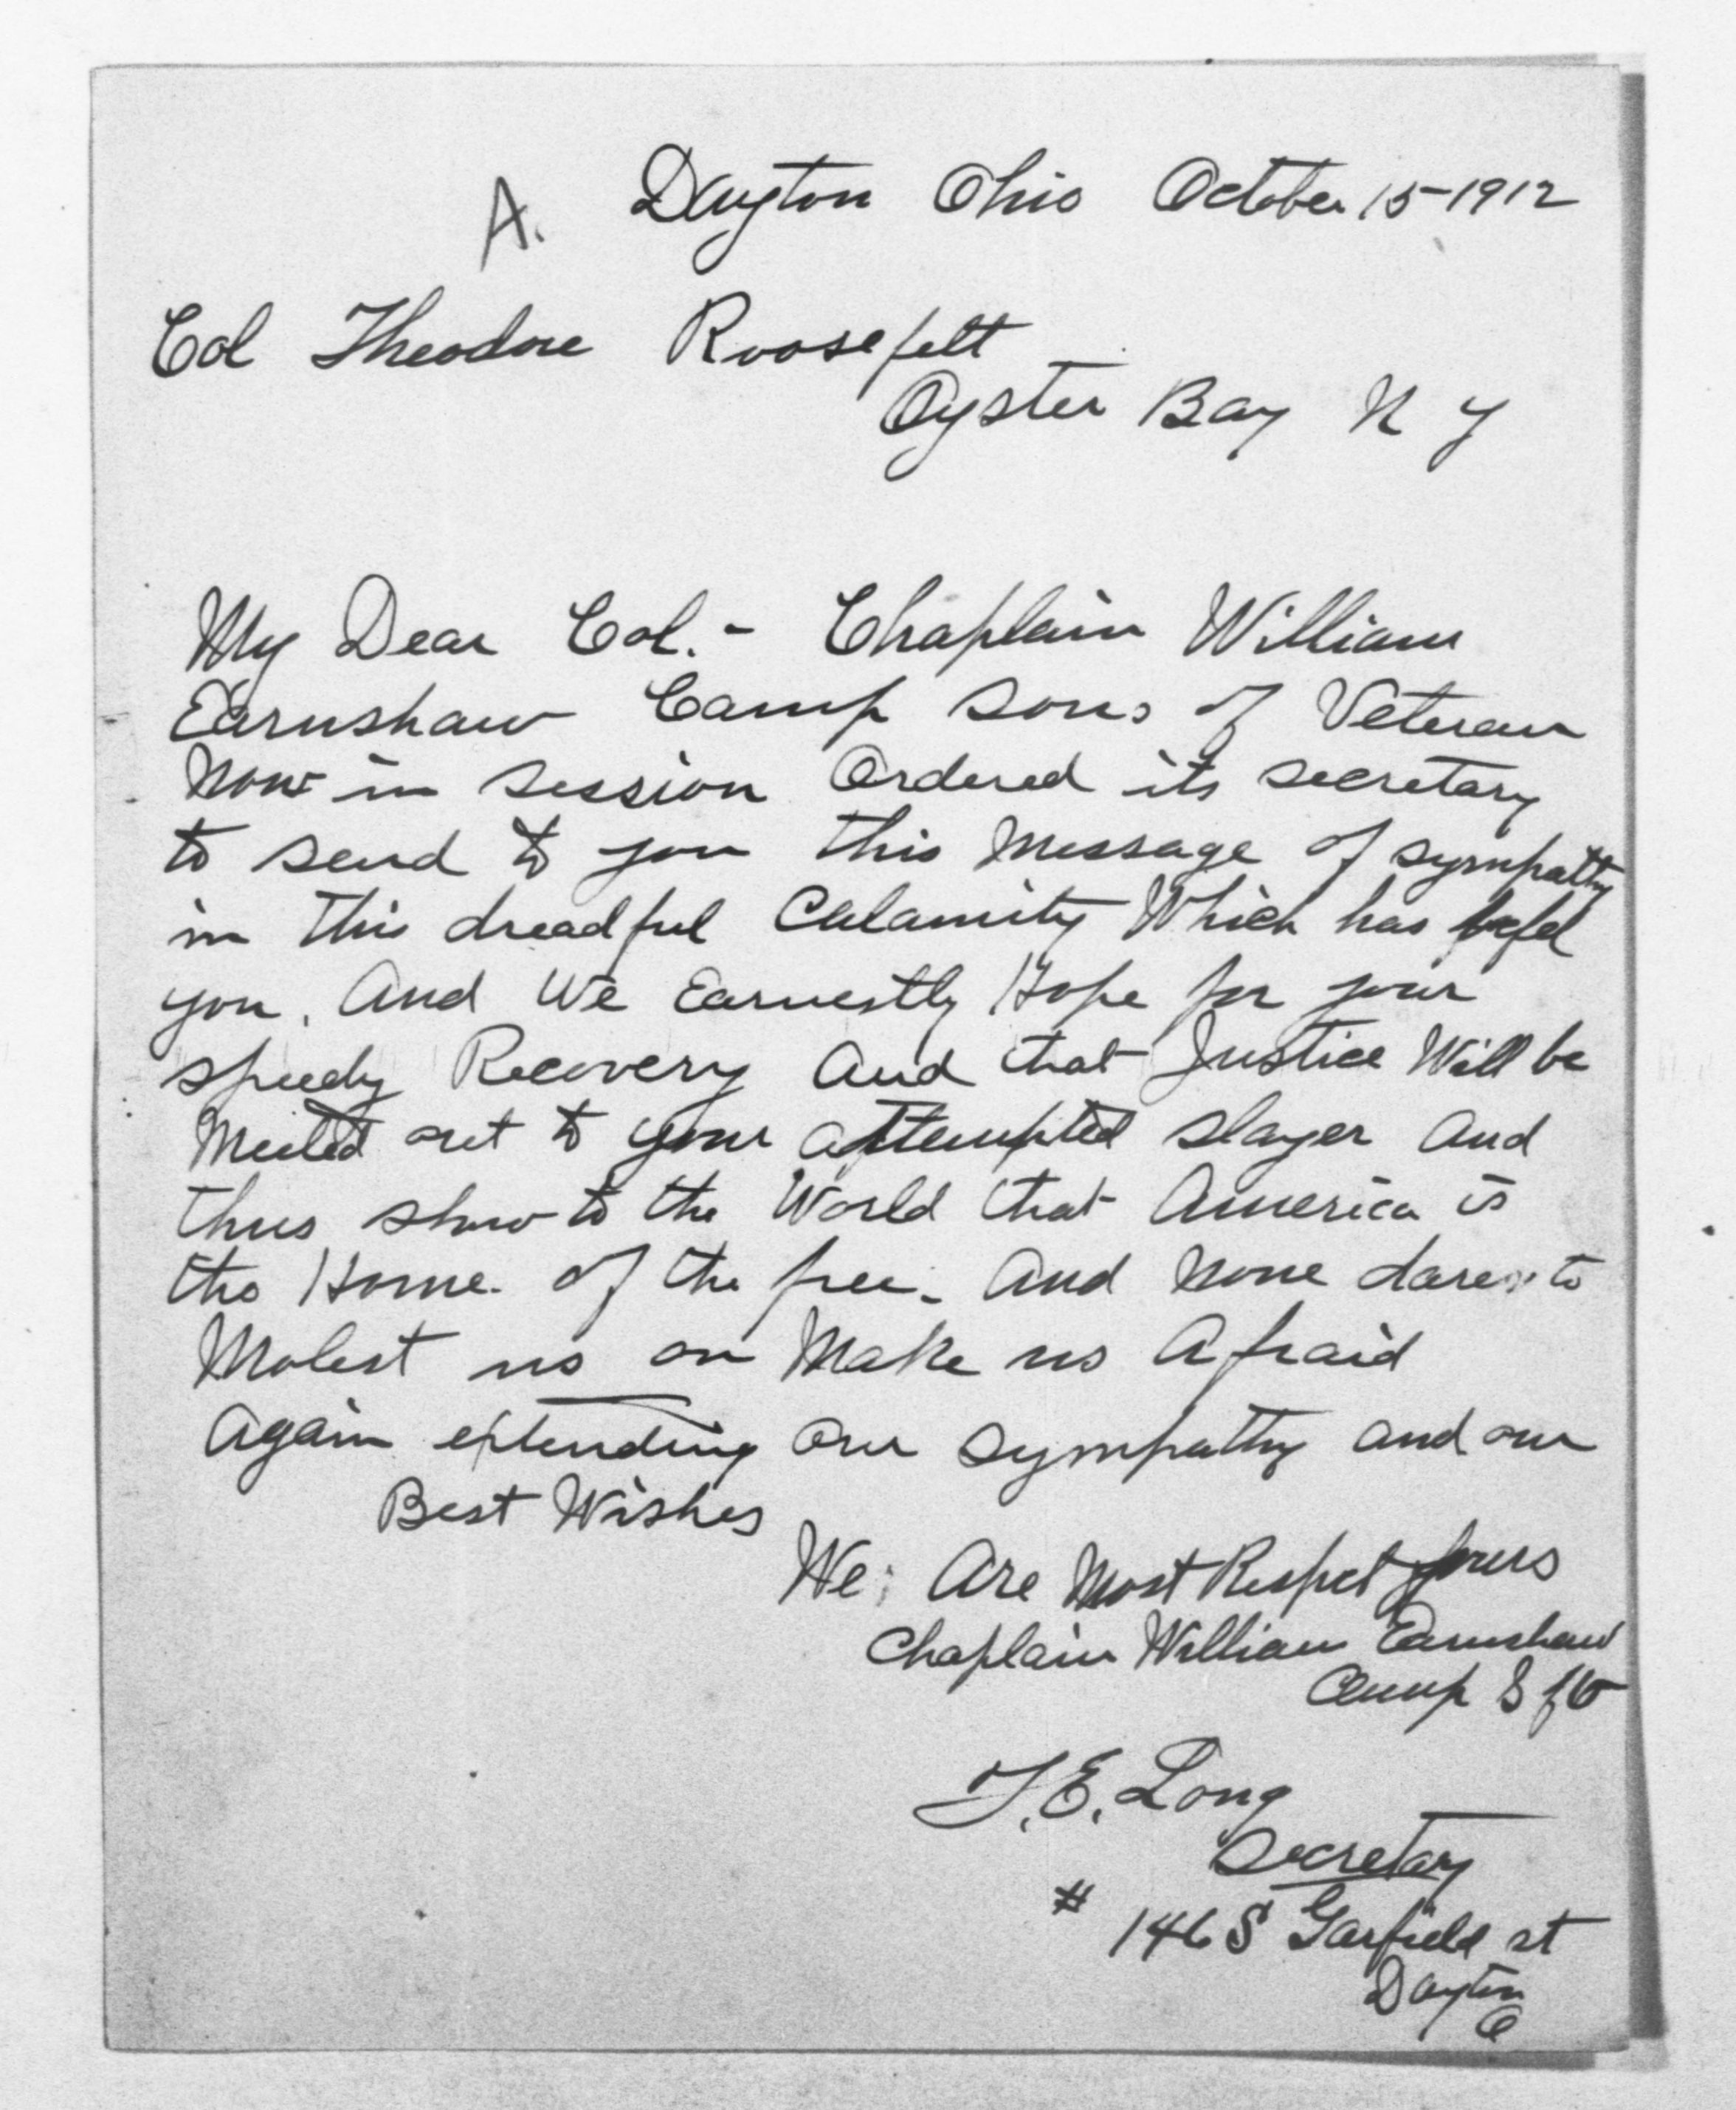 A. Dayton Ohio October 15-1912
Col Theodore Roosefelt
Oyster Bay N Y
My Dear Col. - Chaplain William
Earnshaw Camp Sons of Veteran
Now in session Ordered its secretary
to send to you this Message of sympathy
in this dreadful Calamity Which has befel
you, And We Earnestly Hope for your
speedy Recovery And that Justice Will be
Meeted out to your attempted slayer And
thus show to the World that America is
the Home of the free - And None dare to
Molest us or Make us Afraid
Again extending our sympathy and our
Best Wishes
We, Are Most Respct yours
Chaplain William Earnshaw
Camp S of V
T. E. Long
Secretary
# 146 S Garfield st
Dayton
O